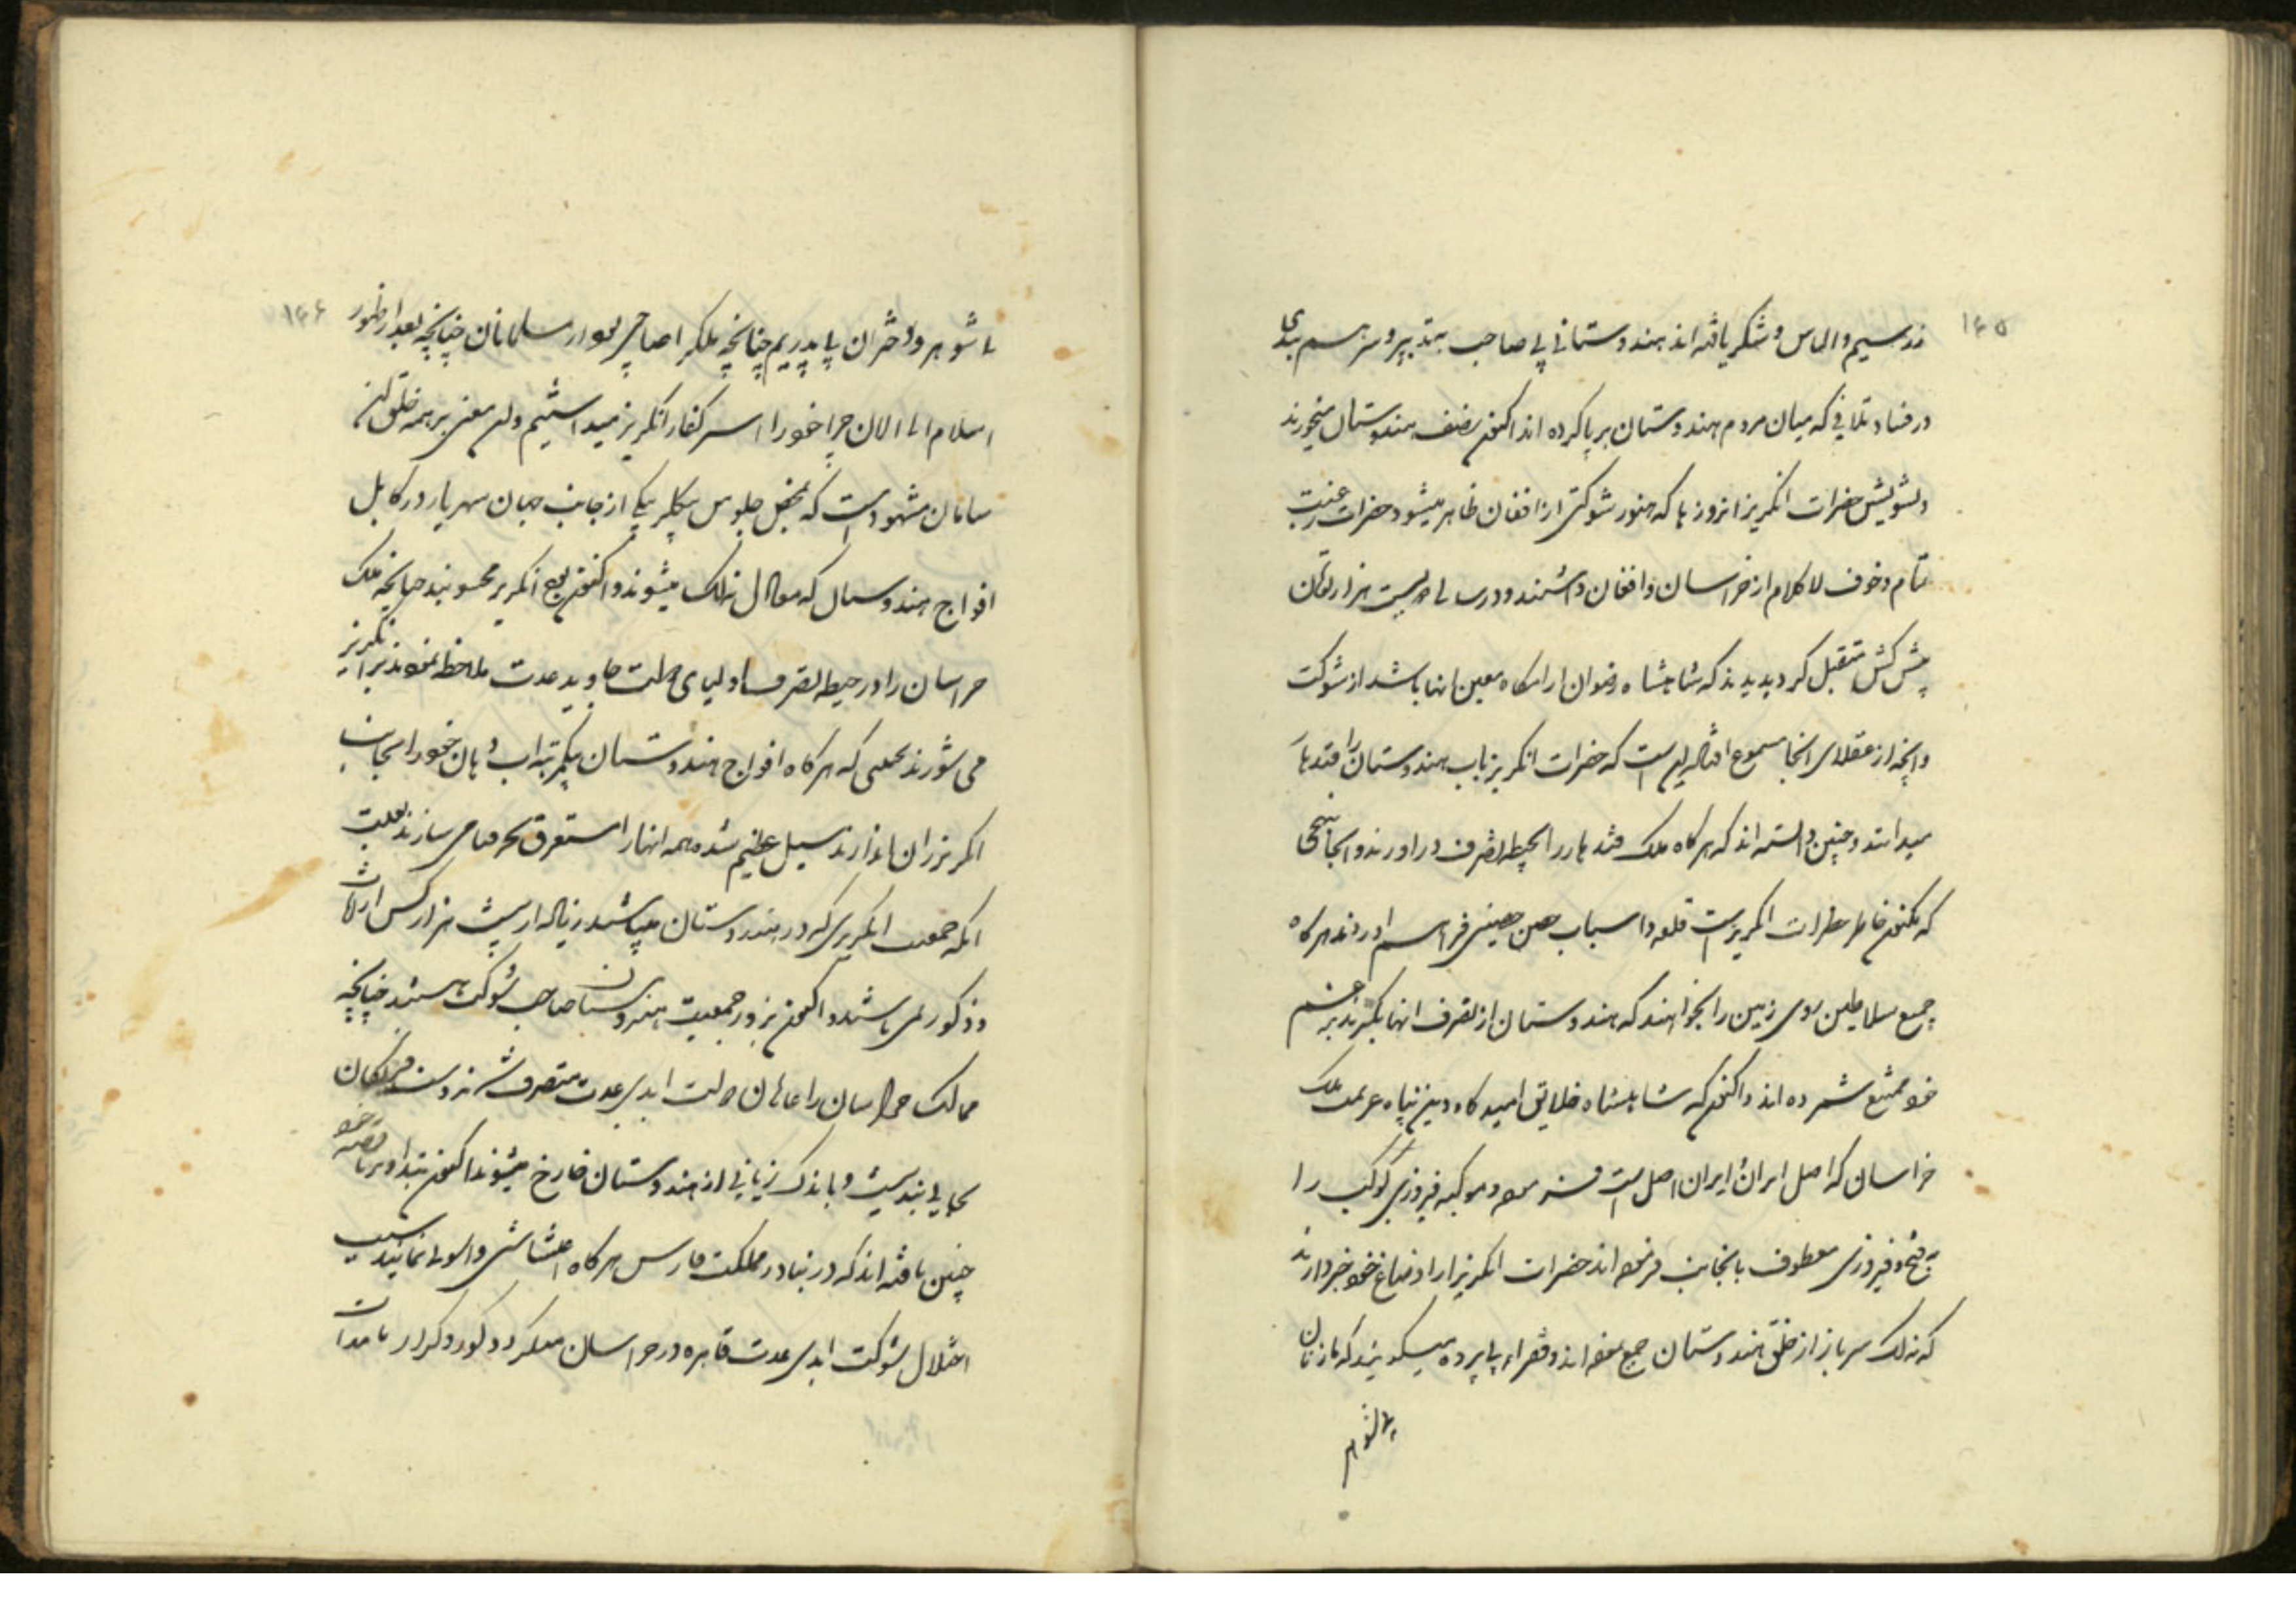 ۱۴۵
زر سیم و الماس و شکر یافته اند هندوستانی بی صاحب بتدبیر و سر هم بندی
در فساد تلافی که میان مردم هندوستان برپا کرده اند اکنون نصف هندوستان میخورند
و تشویش حضرات انکریز از روزیها که هنوز شوکتی از افغان ظاهر میشود حضرات رعبت
تمام و خوف لاکلام از خراسان و افغان داشتند و در سالی دویست هزار تومان
پیش کش متقبل کردیدند که شاهنشاه رضوان آرامگاه معین آنها باشد از شوکت
و آنچه از عقلای آنجا مسموع افتاد این است که حضرات انکریز باب هندوستان را قندهار
میدانند و چنین دانسته اند که هرکاه ملک قندهار را بحیطه تصرف در آورند و آنجا بنهجی
که مکنون خاطر حضرات انکریز است قلعه و اسباب حصن حصینی فراهم آوردند هرکاه
جمیع سلاطین روی زمین را بخواهند که هندوستان از تصرف آنها بگیرند بزعم
خود ممتنع شمرده اند و اکنون که شاهنشاه خلایق امیدگاه دین پناه عزیمت ملک
خراسان که اصل ایران و ایران اصل است فرموده و موکبه فیروزی کوکب را
بفتح و فیروزی معطوف بآنجانب فرموده اند حضرات انکریز را از اوضاع خود خبر دارند
که نه لک سرباز از خلق هندوستان جمع نموده اند و فقراء بی پرده میگویند که ما زنان
با شوهر
۱۴۶
با شوهر و دختران با پدریم چنانچه ملک را صاحبی بود از مسلمانان چنانچه بعد از ظهور
اسلام الی الآن چرا خود را اسیر کفار انکریز میداشتیم و این معنی بر همه خلق آن
سامان مشهود است که بمحض جلوس بیکلربیکی از جانب جهان شهریار در کابل
افواج هندوستان که موازی نه لک میشوند و اکنون فوج انکریز محسوبند چنانچه ملک
خراسان را در حیطه تصرف اولیای دولت جاوید عدت ملاحظه نمودند بر انکریز
می شورند بحدی که هرکاه افواج هندوستان یکمرتبه آب دهان خود را بجانب
انکریزان اندازند سیل عظیم شده همه آنها را مستغرق بحر فنا می سازند بعلت
آنکه جمعیت انکریزی که در هندوستان میباشند زیاده از بیست هزار کس از اناث
و ذکور نمی باشند و اکنون بزور جمعیت هندوستان صاحب شوکت هستند چنانچه
ممالک خراسان را غازیان دولت ابدی عدت متصرف شوند دست فرنگیان
بجایی بند نیست و باندک زمانی از هندوستان خارج میشوند اکنون تدابیر ناقصه خود
چنین یافته اند که در بنادر مملکت فارس هرکاه اغتشاشی و آشوبی نمایند سبب
اختلال شوکت ابدی عدت قاهره در خراسان میگردد